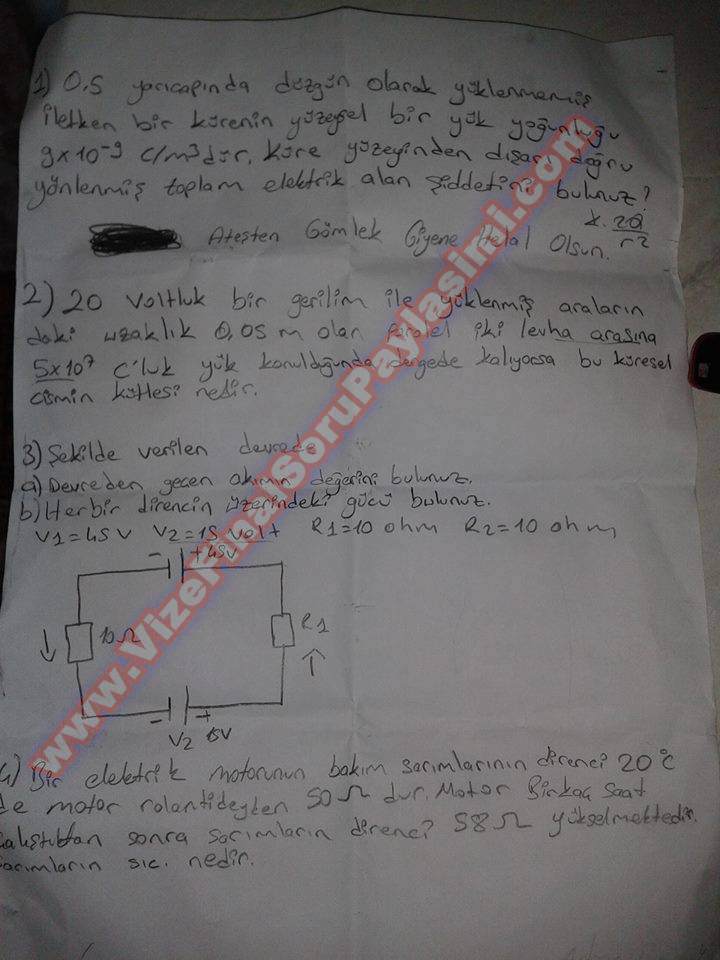 1) 0.5 yarıçapında düzgün olarak yüklenmemiş
iletken bir kürenin yüzeysel bir yük yoğunluğu
9x10⁻⁹ C/m³ dür. Küre yüzeyinden dışarı doğru
yönlenmiş toplam elektrik alan şiddetini bulunuz?
Ateşten Gömlek Giyene Helal Olsun.
2) 20 Voltluk bir gerilim ile yüklenmiş araların
daki uzaklık 0,05 m olan paralel iki levha arasına
5x10⁷ C'luk yük konulduğunda dengede kalıyorsa bu küresel
cismin kütlesi nedir.
3) Şekilde verilen devrede
a) Devreden geçen akımın değerini bulunuz.
b) Her bir direncin üzerindeki gücü bulunuz.
V1=45 V V2=15 volt R1=10 ohm R2=10 ohm
- +45V
10Ω R1
- +
V2 15V
4) Bir elektrik motorunun bakım sarımlarının direnci 20°C
de motor rolantideyken 50Ω dur. Motor Birkaç saat
çalıştıktan sonra sarımların direnci 58Ω yükselmektedir.
sarımların sıc. nedir.
www.VizeFinalSoruPaylasimi.com